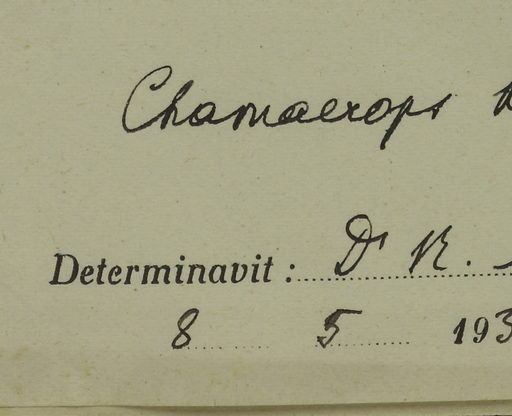 Chamaerops
Determinavit: Dr R.
8 5 193